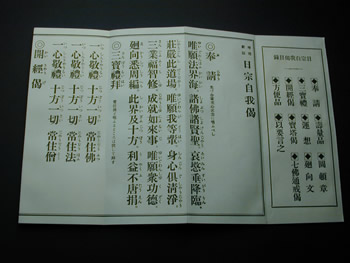 ◆奉請
◆三寶禮
◆開經偈
◆方便品
◆壽量品
◆運想
◆寶塔偈
◆以要言之
◆圓頓章
◆廻向文
◆七佛通戒偈
日宗自我偈
◎奉請
唯願法界海 諸佛賢聖 哀愍垂降臨
莊嚴此道場 唯願我等輩 身心俱清淨
三業福智修 成就如來事 唯願衆功德
廻向悉周編 此界及十方 利益不唐捐
◎三寶禮拜
一心敬禮 十方一切 常住佛
一心敬禮 十方一切 常住法
一心敬禮 十方一切 常住僧
◎開經偈